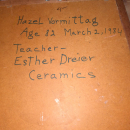 Hazel Vormittag
Age 82 March 2, 1984
Teacher-
Esther Dreier
Ceramics